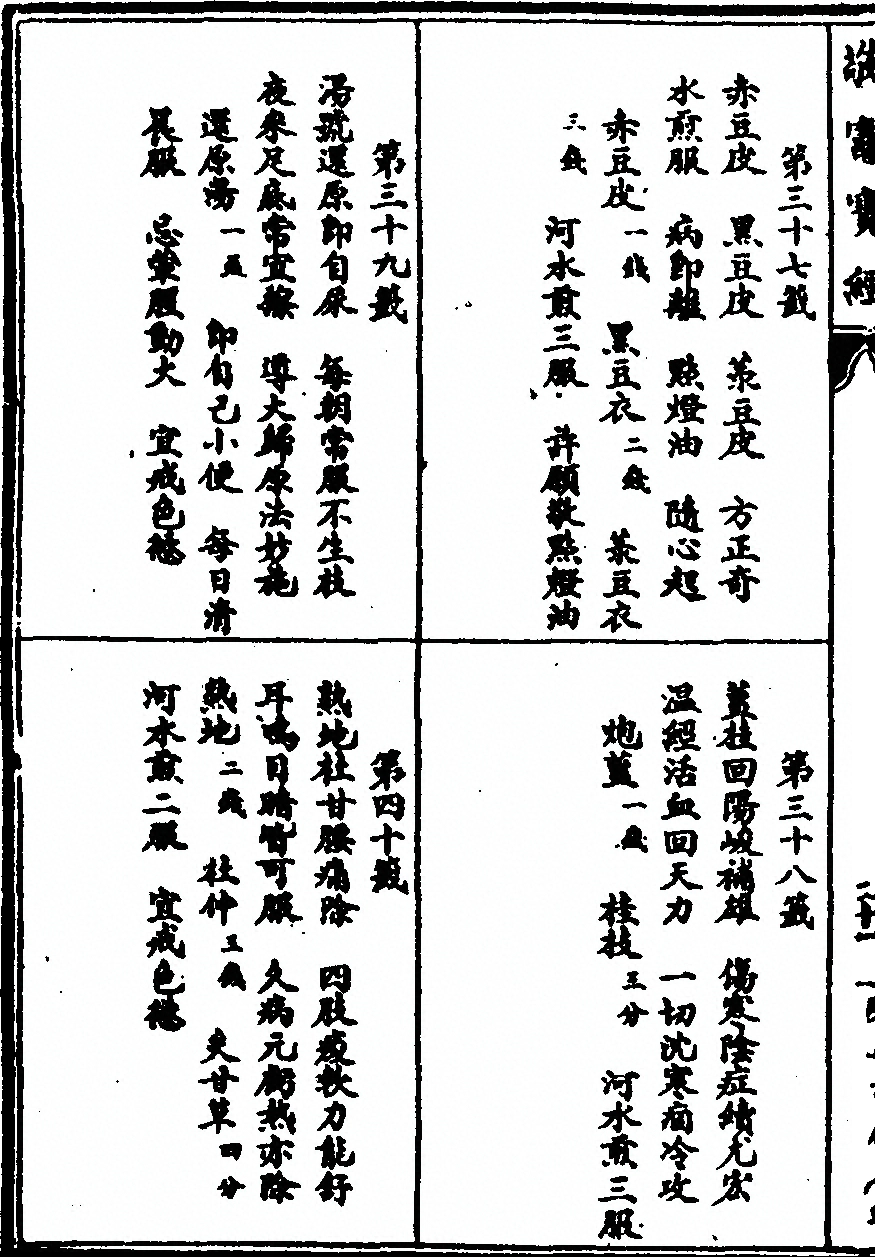 敬竈寶經
第三十七籤
赤豆皮　黑豆皮　菉豆皮　方正奇
水煎服　病即離　點燈油　隨心起
赤豆皮一錢　黑豆衣二錢　菉豆衣
三錢　河水煎三服　許願敬點燈油
第三十八籤
薑枝回陽峻補雄　傷寒陰症績尤宏
温經活血回天力　一切沈寒痼冷攻
炮薑一錢　桂枝三分　河水煎三服
第三十九籤
湯號還原即自尿　每朝常服不生枝
夜來足底常宜擦　導火歸原法妙施
還原湯一盃　即自己小便　每日清
晨服　忌葷腥動火　宜戒色慾
第四十籤
熟地杜甘腰痛除　四肢痠軟力能舒
耳鳴目暗皆可服　久病元虧熱亦除
熟地二錢　杜仲三錢　炙甘草四分
河水煎二服　宜戒色慾